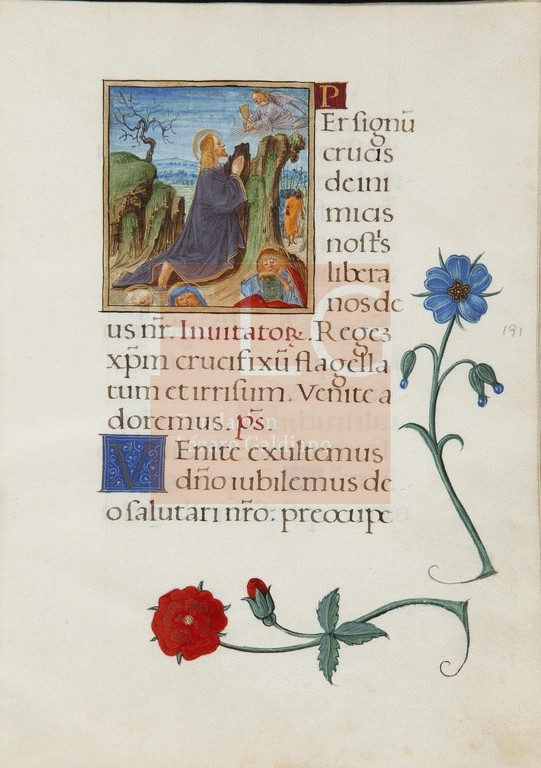 P
Er signū
crucis
de ini
micis
noſt̄s
libera
nos de
us nr̄. Inuitatoꝝ. Regeʒ
xp̄m crucifixū flagella
tum et irrisum. Venite a
doremus. ps̄.
V
Enite exultemus
dn̄o iubilemus de
o salutari nr̄o: preocupe
191
FLG
Fundación
Lázaro Galdiano